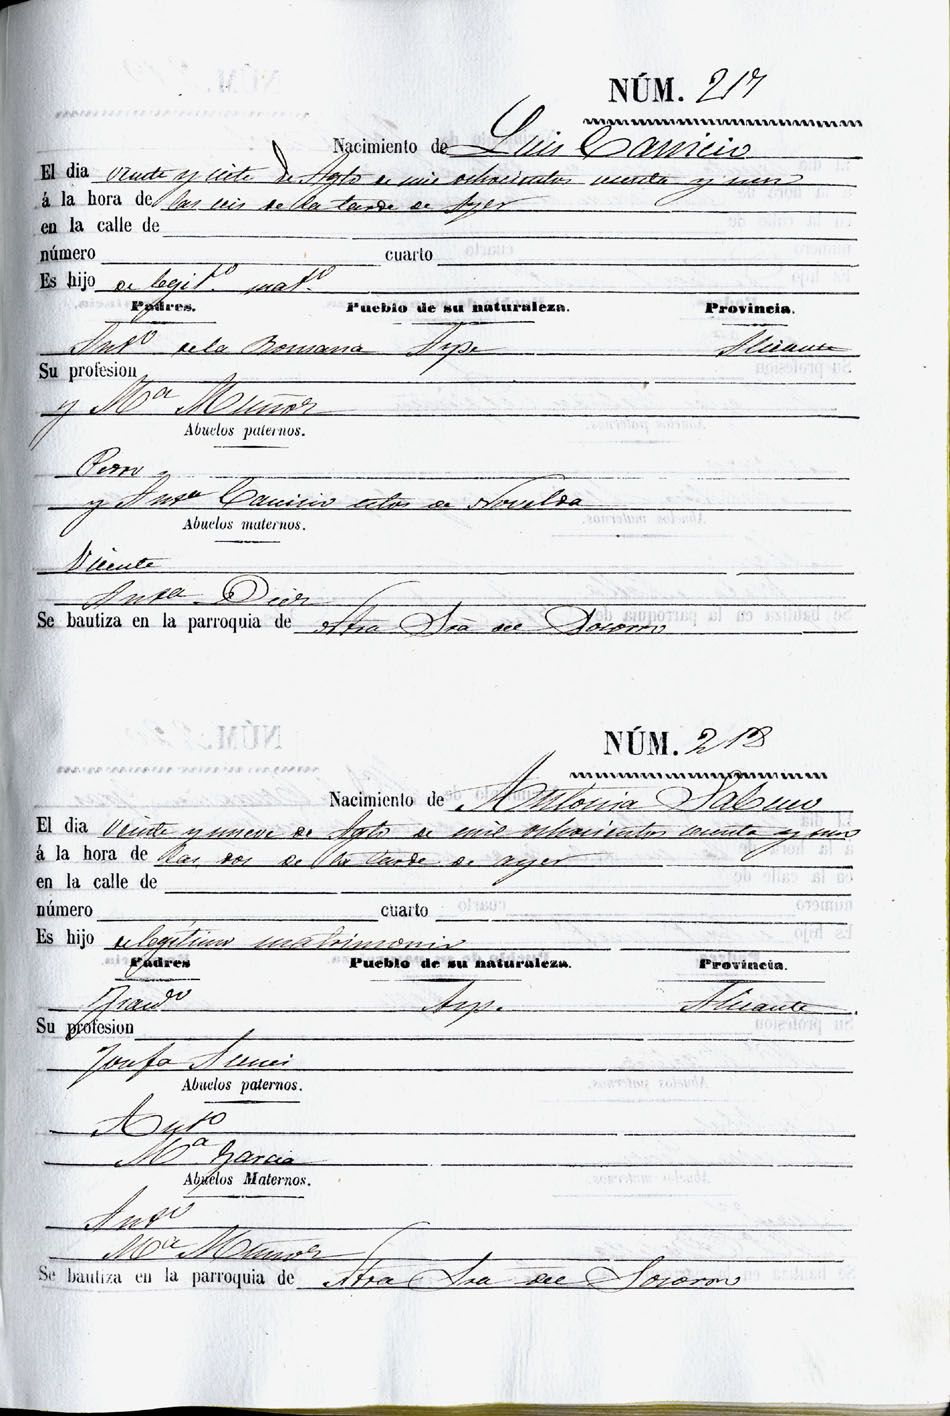 NÚM. 217
Nacimiento de Luis Canicio
El dia veinte y siete de Agto de mil ochocientos sesenta y uno
á la hora de las seis de la tarde de Ayer
en la calle de
número cuarto
Es hijo de legit.º mat.º
Padres. Pueblo de su naturaleza. Provincia.
Antº de la Romana Aspe Alicante
Su profesion
y Mª Muñoz
Abuelos paternos.
Pedro
y Antª Canicio estos de Novelda
Abuelos maternos.
Vicente
Antª Diez
Se bautiza en la parroquia de Ntra Sra del Socorro
NÚM. 218
Nacimiento de Antonia
El dia veinte y nueve de Agto de mil ochocientos sesenta y uno
á la hora de las dos de la tarde de ayer
en la calle de
número cuarto
Es hijo de legitimo matrimonio
Padres Pueblo de su naturaleza. Provincia.
Franº Asp. Alicante
Su profesion
Josefa
Abuelos paternos.
Antº
Mª Garcia
Abuelos Maternos.
Antº
Mª Muñoz
Se bautiza en la parroquia de Ntra Sra del Socorro